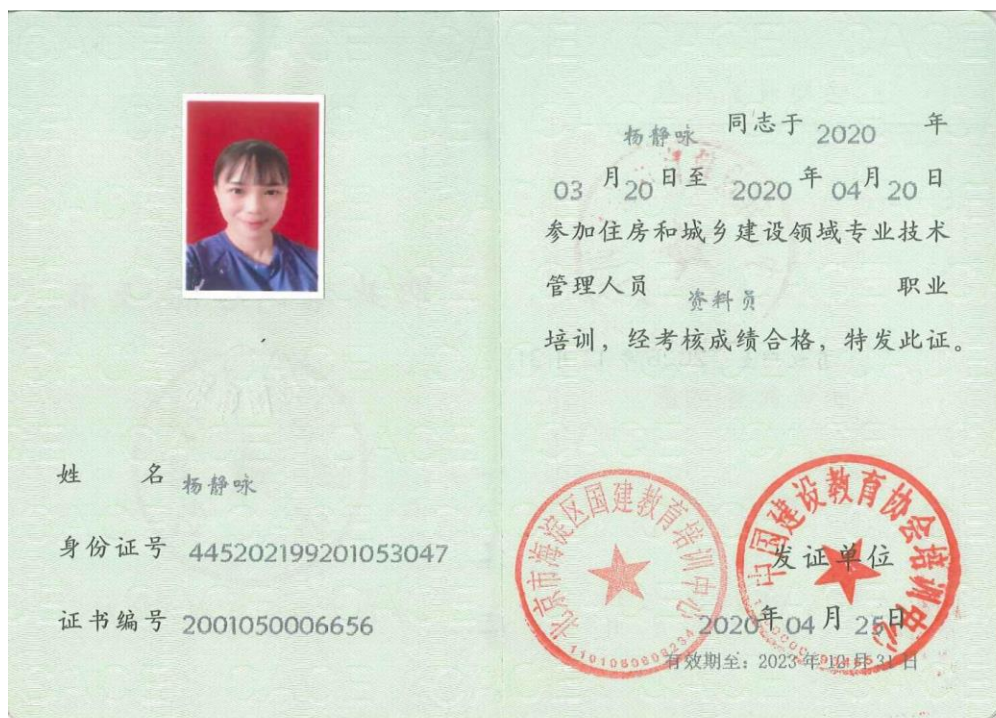 姓 名 杨静咏
身份证号 445202199201053047
证书编号 2001050006656
杨静咏 同志于 2020 年
03 月 20 日至 2020 年 04 月 20 日
参加住房和城乡建设领域专业技术
管理人员 资料员 职业
培训，经考核成绩合格，特发此证。
北京市海淀区国建教育培训中心
中国建设教育协会培训中心
发证单位
2020 年 04 月 25 日
有效期至：2023 年 12 月 31 日